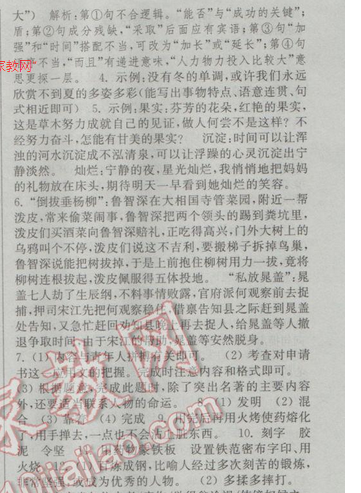 大”) 解析:第①句不合逻辑。“能否”与“成功的关键”;
盾;第②句成分残缺,“采取”后面应有宾语;第③句“加
强”和“时间”搭配不当,可改为“加长”或“延长”;第④句
不当,“而且”有递进意味,“人力物力投入比较大”意
思更深一层。 4. 示例:没有冬的单调,或许我们永远
欣赏不到夏的多姿多彩(能写出事物特点、语意连贯、句
式相近即可) 5. 示例:果实:芬芳的花朵,红艳的果实,
这是草木努力成就自己的见证,做人何尝不是这样?不
经努力奋斗,怎能有甘美的果实? 沉淀:时间可以让浑
浊的河水沉淀成不泓清泉,可以让浮躁的心灵沉淀出宁
静淡然。 灿烂:宁静的夜,星光灿烂,我悄悄地把妈妈
的礼物放在床头,期待明天一早看到她灿烂的笑容。
6. “倒拔垂杨柳”:鲁智深在大相国寺管菜园,附近一帮
泼皮,常来偷菜闹事,鲁智深把两个领头的踢到粪坑里,
泼皮们买酒菜向鲁智深赔礼,正吃得高兴,门外大树上的
乌鸦叫个不停,泼皮们说这不吉利,要搬梯子拆掉鸟巢,
鲁智深说能把树拔掉,于是上前抱住柳树用力一拔,竟将
柳树连根拔起,泼皮佩服得五体投地。 “私放晁盖”:晁
盖七人劫了生辰纲,不料事情败露,官府派何观察前去捉
捕,押司宋江先把何观察稳住,借禀告知县之际赶到晁盖
处告知,又急忙赶回 再去捉人,给晁盖等人撤
退争取时间,由于宋江的帮助,晁盖等安然脱身。
7. (1) 人 即可。 (2) 考查对申请
书这一应用文的把握。完成时注意内容和格式即可。
(3) 根据 完成此题时,除了突出名著的主要内容
外,还要适当联系人物的命运。 (1) 发明 (2) 混
合 (3) 靠近 (4) 完成 9. 因为是利用火烤使药熔化
,用手抹去,一点也不会沾上脏东西。 10. 刻字 胶
泥 令坚 用药 设置铁范密布字印,用
火烧 炼成钢,比喻人经过多次刻苦的锻炼,
改成为优秀的人物。 (2) 多揉多捧打。